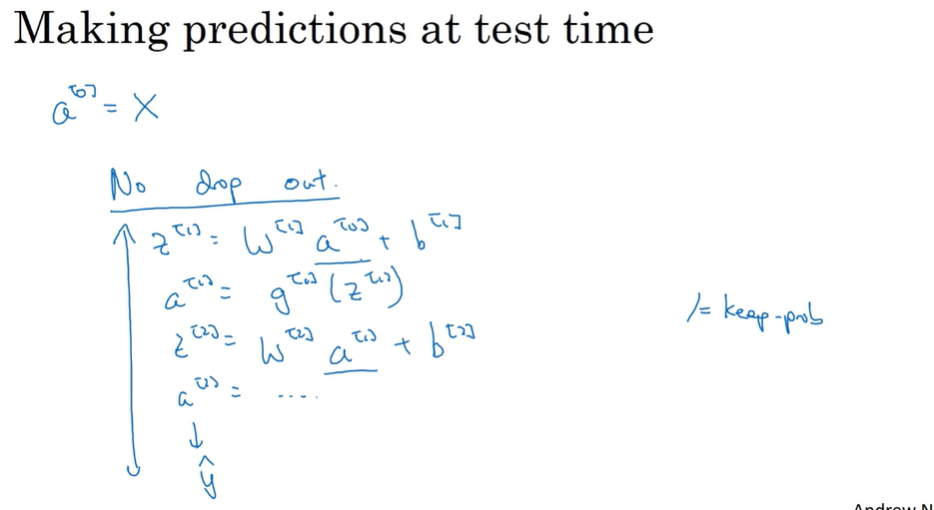 Making predictions at test time
a^[0] = X
No drop out.
z^[1] = W^[1] a^[0] + b^[1]
a^[1] = g^[1](z^[1])
z^[2] = W^[2] a^[1] + b^[2]
a^[2] = ....
↓
ŷ
/= keep-prob
Andrew N